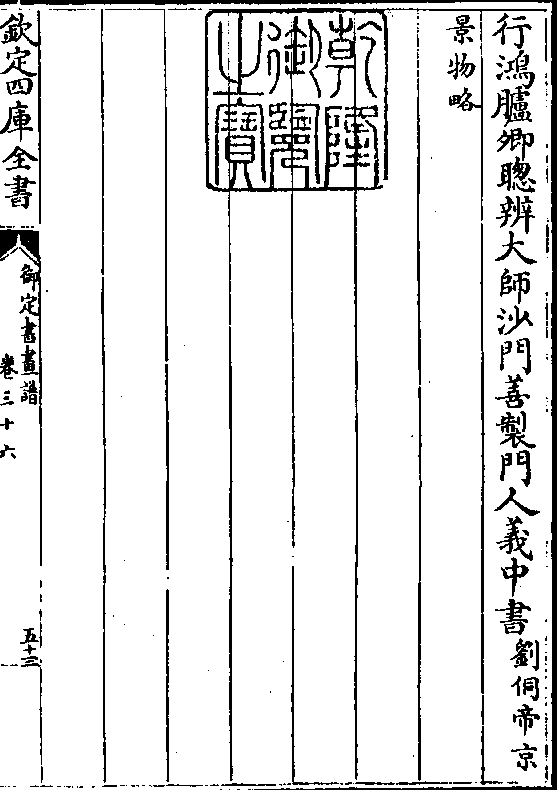 行鴻臚卿聰辨大師沙門善製門人義中書劉侗帝京
景物略
乾隆
御覽
之寶
欽定四庫全書
御定書畫譜
卷三十六
五十三